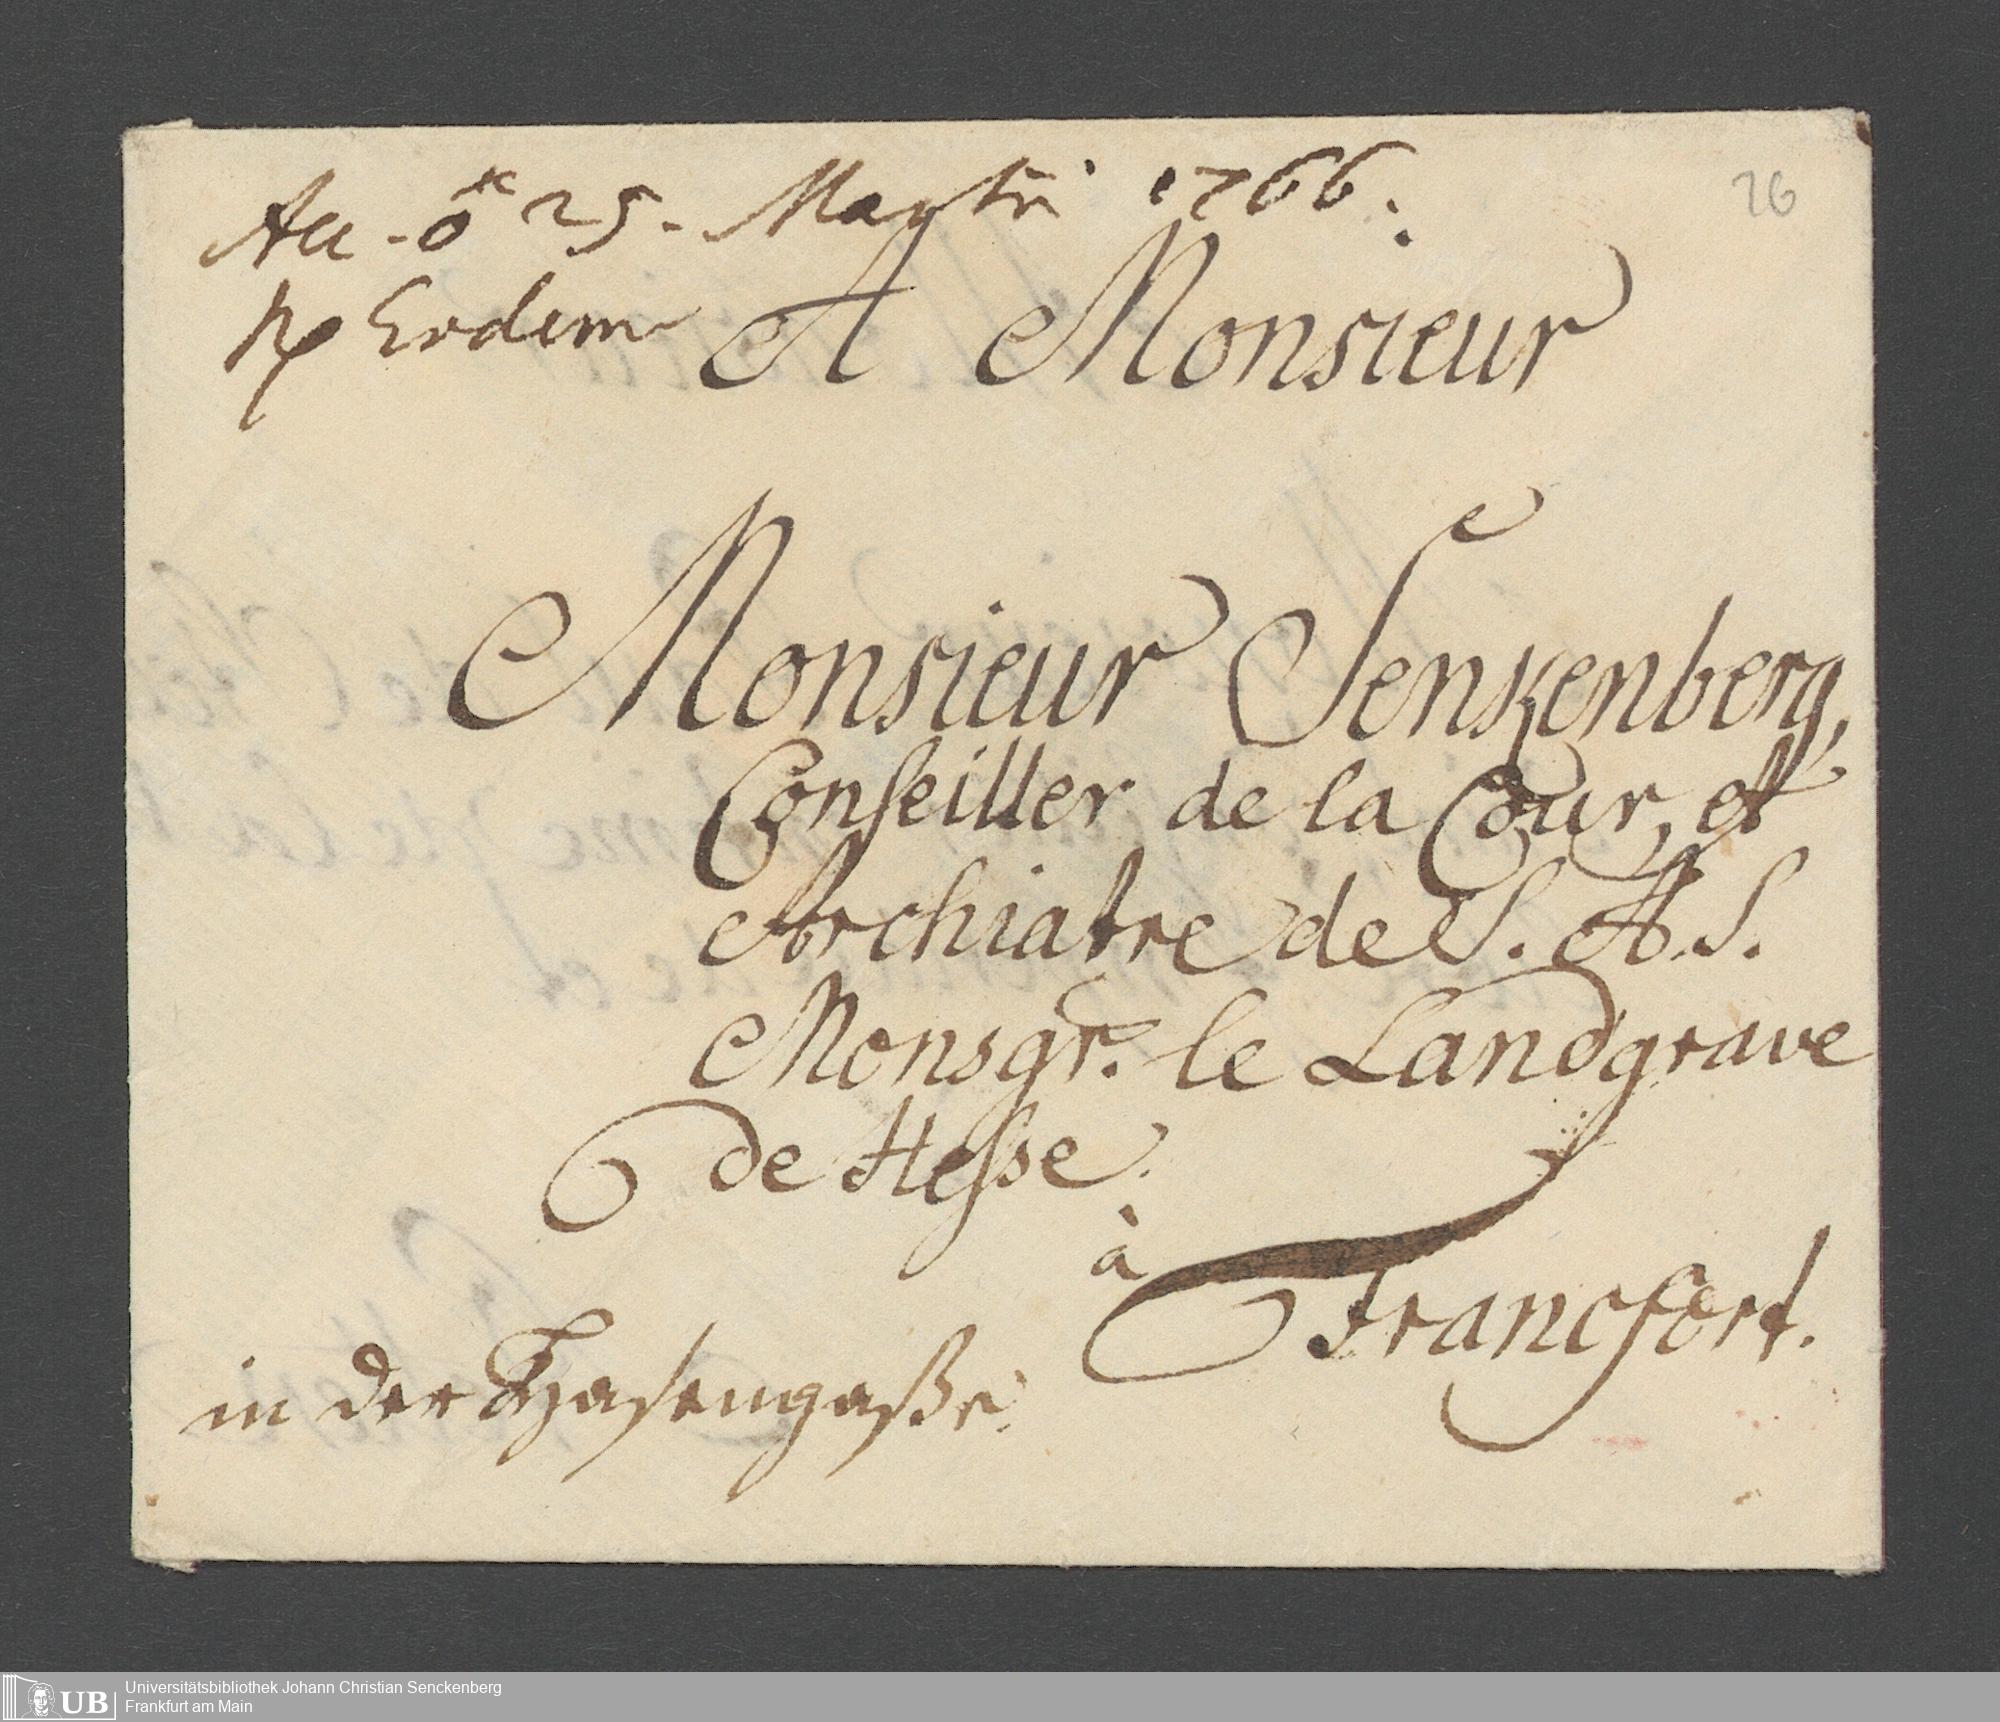 Acc. ♂ 25. Martii 1766.
Rp Eodem
26
A Monsieur
Monsieur Senkenberg,
Conseiller de la Cour, et
Archiatre de S. A. S.
Monsgr. le Landgrave
de Hesse.
à
Francfort.
in der Hasengaße.
UB
Universitätsbibliothek Johann Christian Senckenberg
Frankfurt am Main